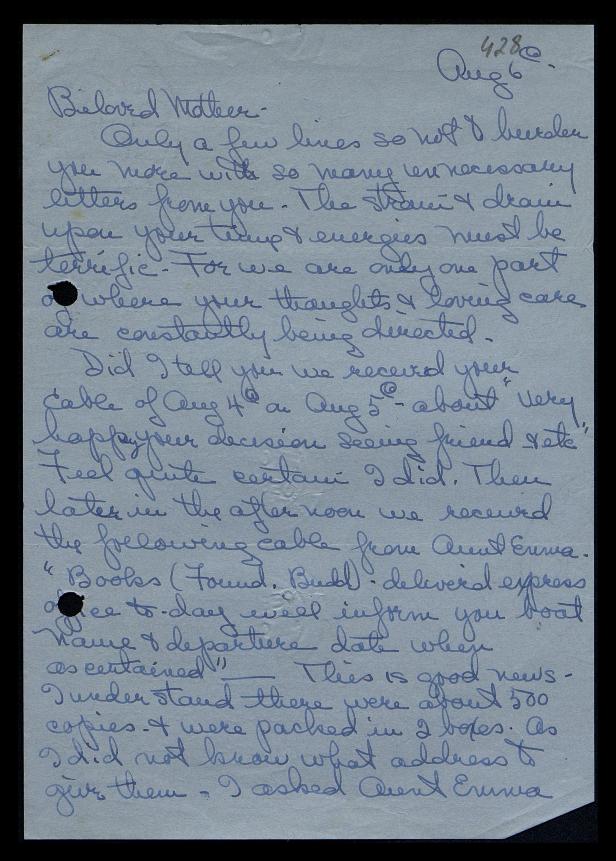 428
Aug 6@.
Beloved Mother-
Only a few lines so not to burden
you more with so many unnecessary
letters from you - The strain & drain
upon your time & energies must be
terrific - For we are only one part
of where your thoughts & loving cares
are constantly being directed.
Did I tell you we received your
cable of Aug 4@ on Aug 5@ - about "Very
happy your decision seeing friend & etc"
Feel quite certain I did. Then
later in the afternoon we received
the following cable from Aunt Emma.
"Books (Found. Budd) - delivered express
office to-day will inform you boat
name & departure date when
ascertained" — This is good news -
I understand there were about 500
copies - & were packed in 2 boxes. As
I did not know what address to
give them - I asked Aunt Emma